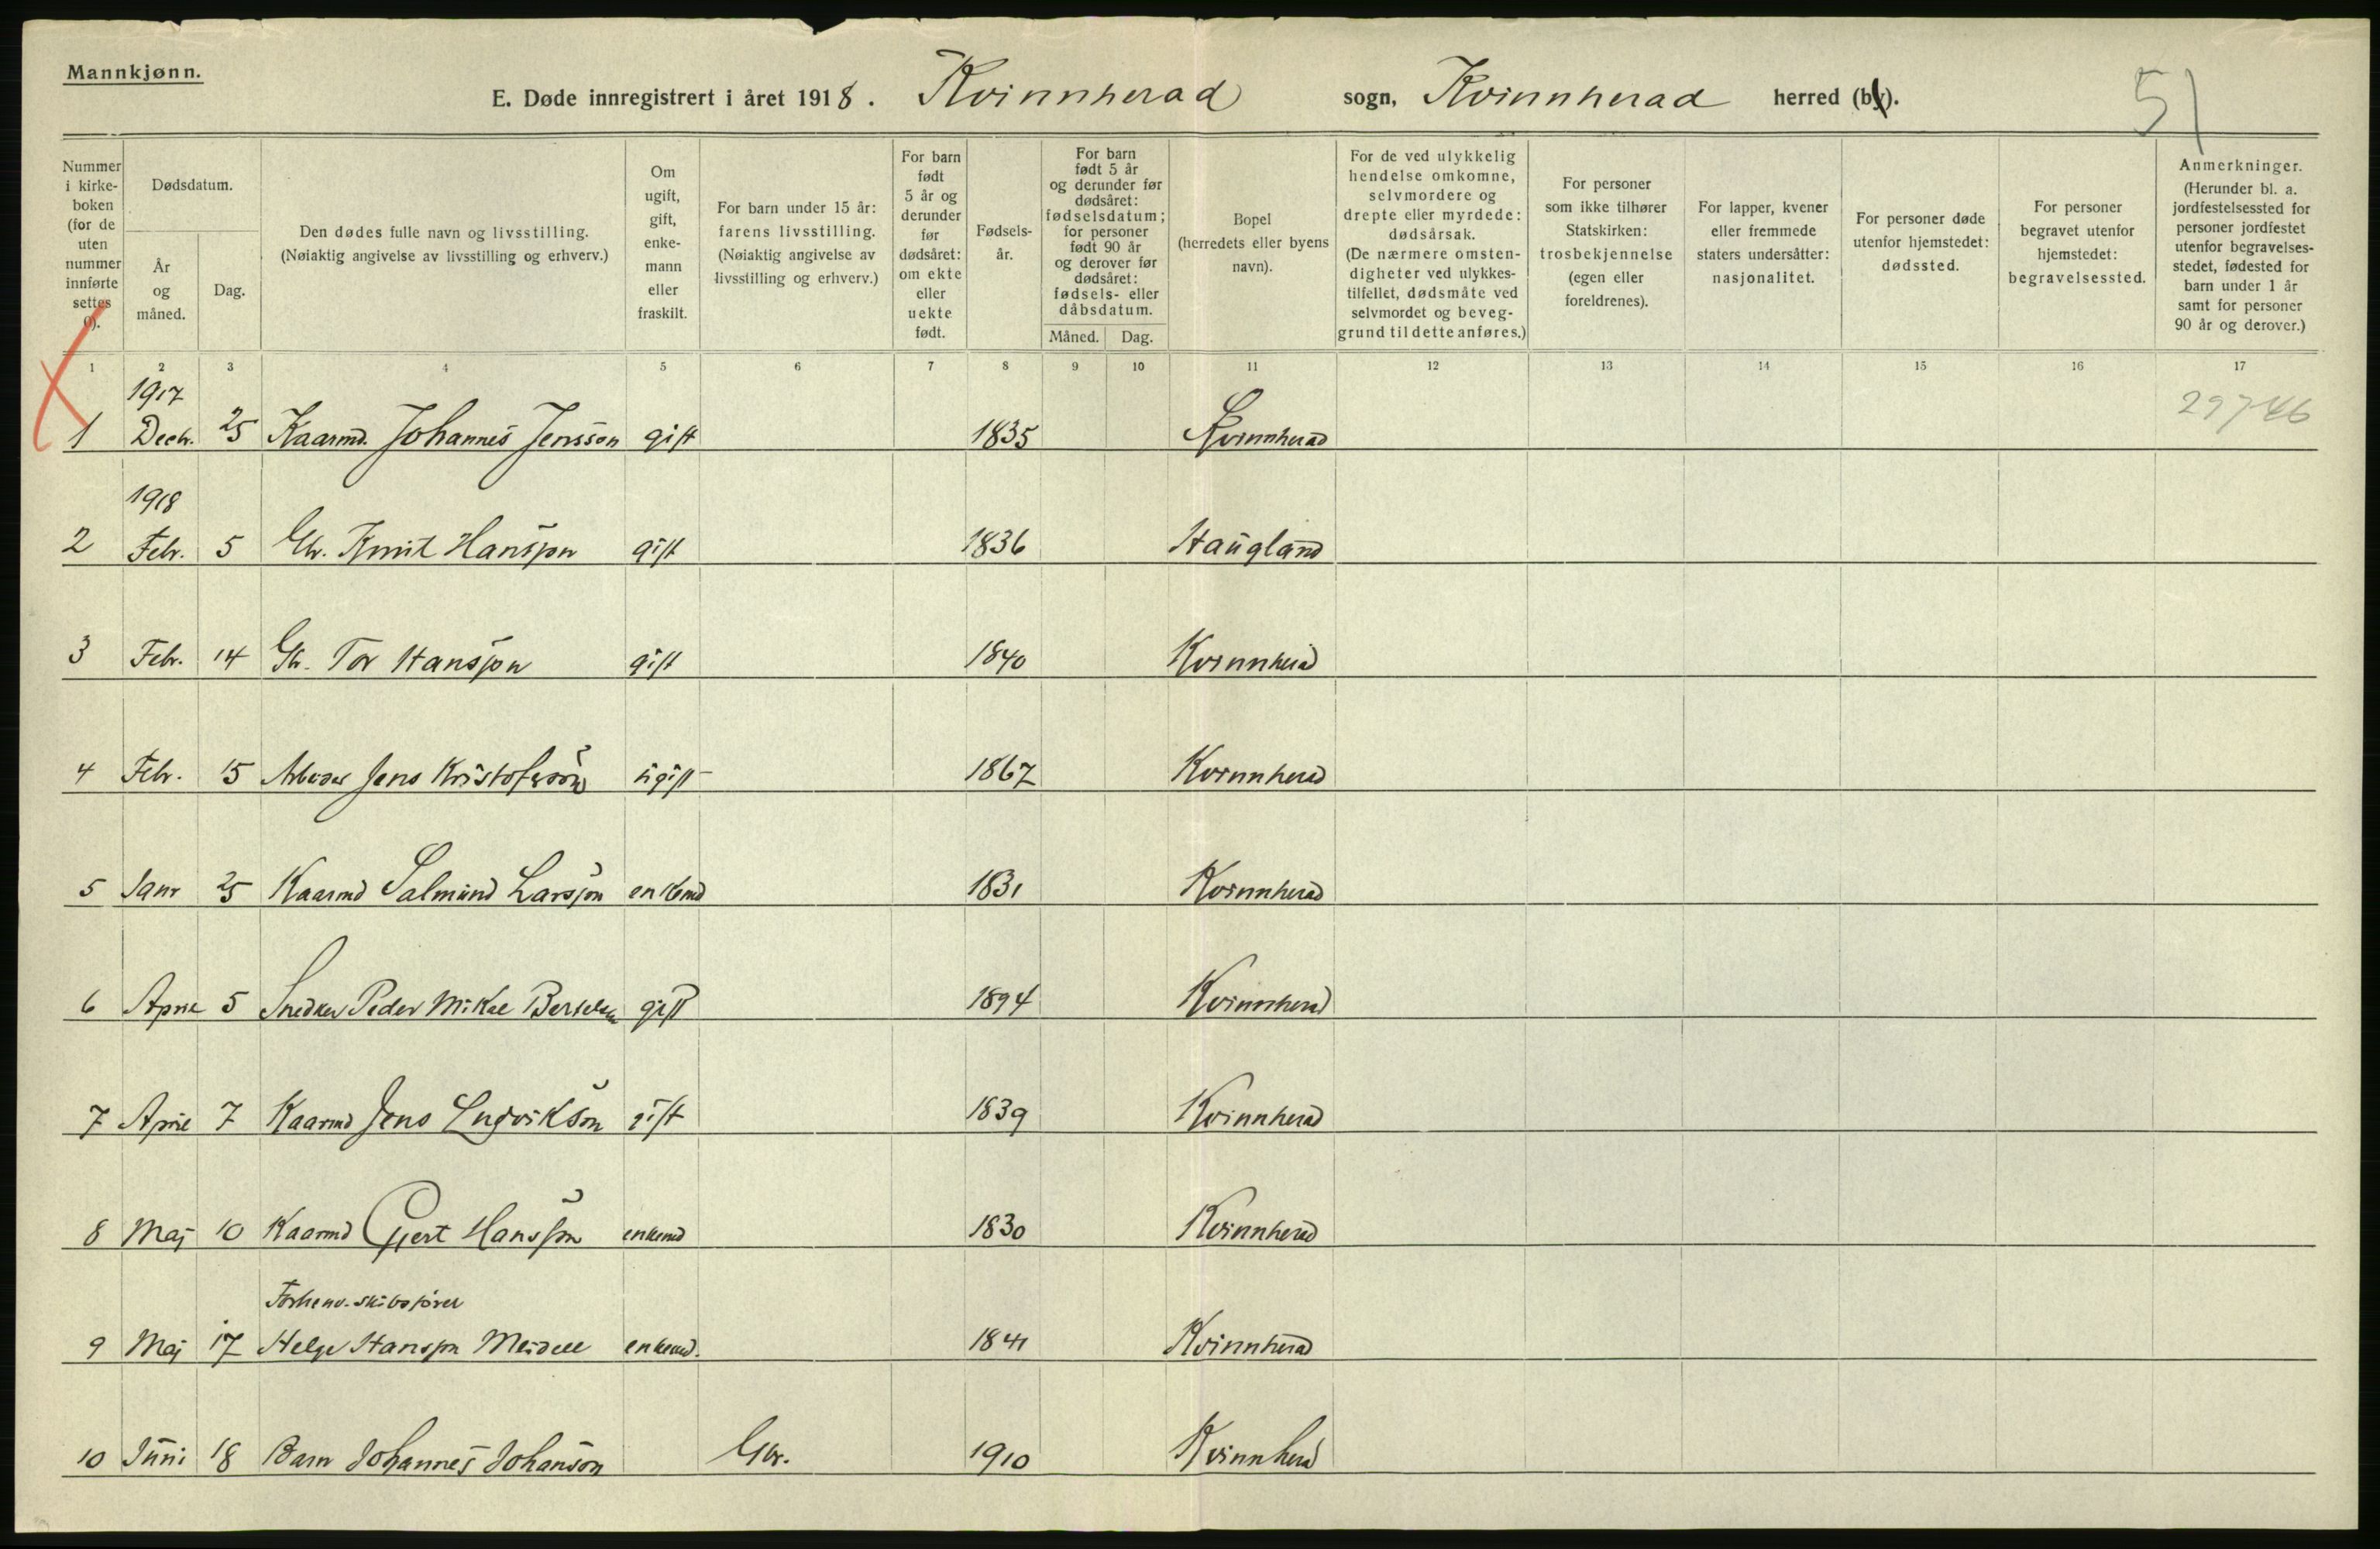 Mannkjønn.
E. Døde innregistrert i året 1918. Kvinnherad sogn, Kvinnherad herred (by).
51
Nummer i kirke-boken (for de uten nummer innførte settes 0).
Dødsdatum.
År og måned.
Dag.
Den dødes fulle navn og livsstilling.
(Nøiaktig angivelse av livsstilling og erhverv.)
Om ugift, gift, enke-mann eller fraskilt.
For barn under 15 år: farens livsstilling.
(Nøiaktig angivelse av livsstilling og erhverv.)
For barn født 5 år og derunder før dødsåret: om ekte eller uekte født.
Fødsels-år.
For barn født 5 år og derunder før dødsåret: fødselsdatum; for personer født 90 år og derover før dødsåret: fødsels- eller dåbsdatum.
Måned.
Dag.
Bopel (herredets eller byens navn).
For de ved ulykkelig hendelse omkomne, selvmordere og drepte eller myrdede: dødsårsak.
(De nærmere omsten-digheter ved ulykkes-tilfellet, dødsmåte ved selvmordet og beveg-grund til dette anføres.)
For personer som ikke tilhører Statskirken: trosbekjennelse (egen eller foreldrenes).
For lapper, kvener eller fremmede staters undersåtter: nasjonalitet.
For personer døde utenfor hjemstedet: dødssted.
For personer begravet utenfor hjemstedet: begravelsessted.
Anmerkninger.
(Herunder bl. a. jordfestelsessted for personer jordfestet utenfor begravelses-stedet, fødested for barn under 1 år samt for personer 90 år og derover.)
1 2 3 4 5 6 7 8 9 10 11 12 13 14 15 16 17
1917
29746
1 Decb. 25 Kaarmd. Johannes Jensson gift 1835 Kvinnherad
1918
2 Febr. 5 Gbr. Knut Hansson gift 1836 Haugland
3 Febr. 14 Gbr. Tor Hansson gift 1840 Kvinnherad
4 Febr. 15 Arbeider Jens Kristofersson ugift 1867 Kvinnherad
5 Janr 25 Kaarmd Salmund Larsson enkemd 1831 Kvinnherad
6 April 5 Snedker Peder Mikal Bertelsen gift 1894 Kvinnherad
7 April 7 Kaarmd Jens Ludvikson gift 1839 Kvinnherad
8 Maj 10 Kaarmd Gjert Hansson enkemd 1830 Kvinnherad
Forhenv. skibsfører
9 Maj 17 Helge Hansson Meidell enkemd. 1841 Kvinnherad
10 Juni 18 Barn Johannes Johanson Gbr. 1910 Kvinnherad